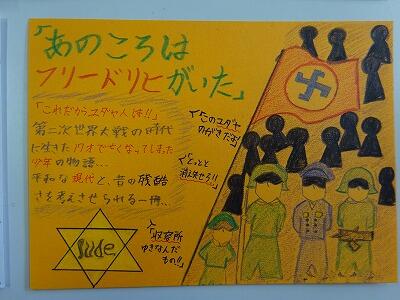 「あのころは
フリードリヒがいた」
「これだからユダヤ人は!!」
第二次世界大戦の時代
に生きた17才で亡くなってしまった
少年の物語…
平和な現代と、昔の残酷
さを考えさせられる一冊。
「このユダヤ
「とっとと
消え失せろ!!」
「収容所
ゆきなんだ
もの!!」
Jude